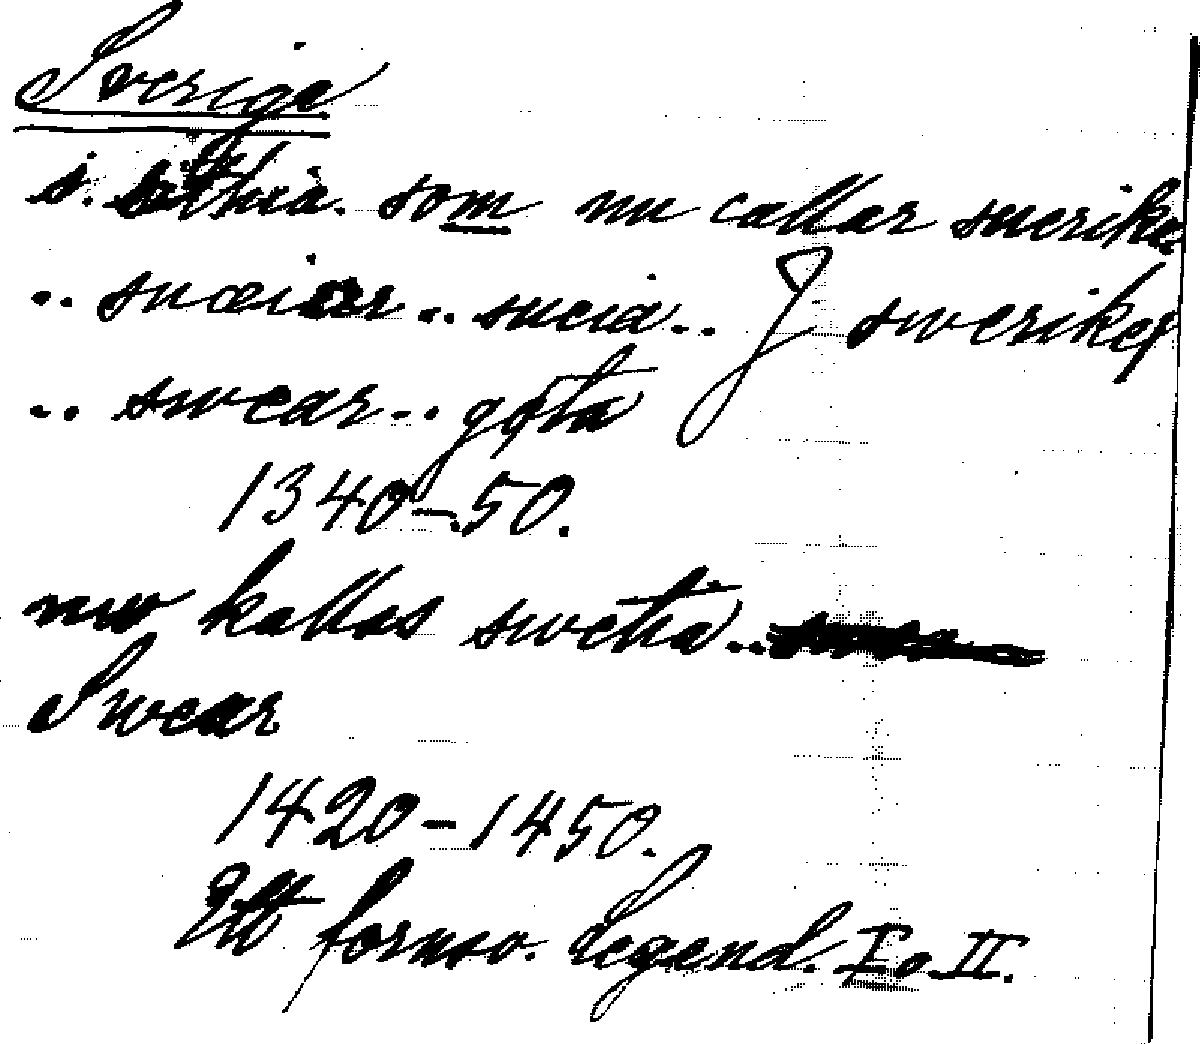 Sverige
i. sithia. som nu callar suerike
.. suæiar .. sueia .. J swerikej
.. swear .. gøta
1340–50.
nw kallas swetia ..
Swear
1420–1450.
Ett fornsv. Legend. I o II.